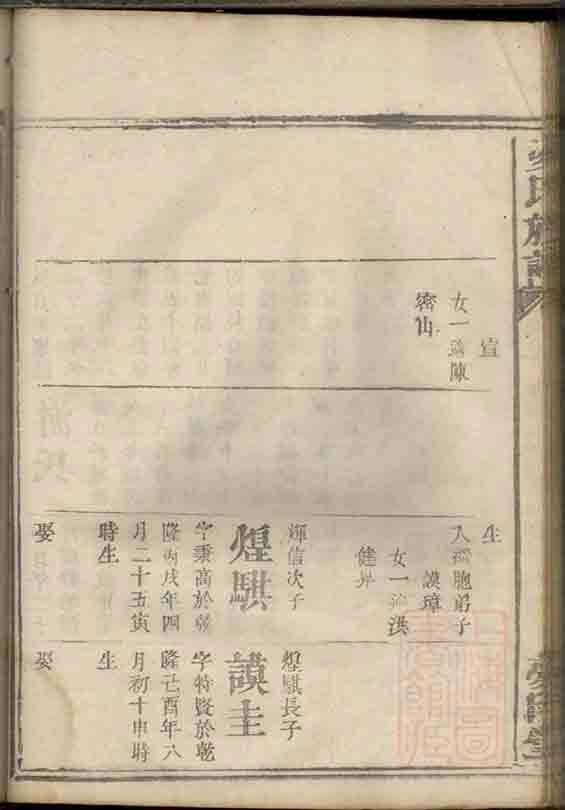 氏族譜
宣
女一適陳
密山
生
入繼胞弟子
謨璋
女一適洪
健昇
輝信次子
煌騏
字秉高於乾
隆丙戌年四
月二十五寅
時生
娶
煌騏長子
謨圭
字特賢於乾
隆己酉年八
月初十申時
生
娶